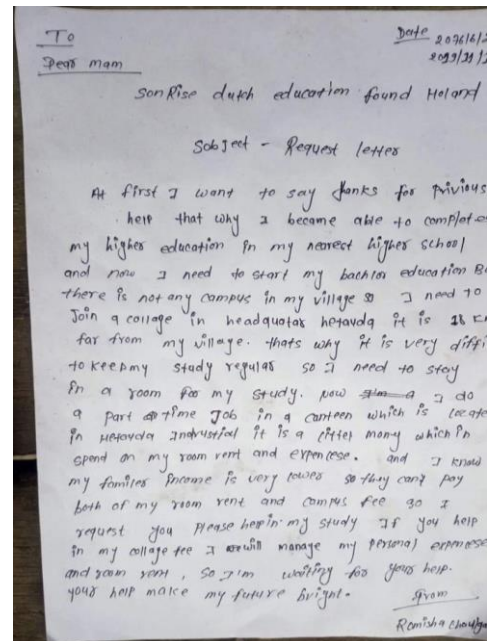 To
Date 2076/6/2
Dear mam
2099/29/2
SonRise dutch education found Holand
Sobject - Request letter
At first I want to say thanks for Privious
help that why I became able to complate
my higher education in my nearest higher school
and now I need to start my bachlor education B
there is not any campus in my village so I need to
Join a collage in headquatar hetauda it is 18 k
far from my village. thats why it is very diffi
to keep my study regular so I need to stay
in a room for my study. now I do
a part time Job in a canteen which is locate
in Hetauda Industrial it is a litter mony which in
spend on my room rent and expencese. and I know
my familes Income is very lower so they can't pay
both of my room rent and campus fee so I
request you Please help in my study If you help
in my collage fee I will manage my Personal expencese
and room rent, so I'm waiting for your help.
your help make my future bright.
from
Romisha